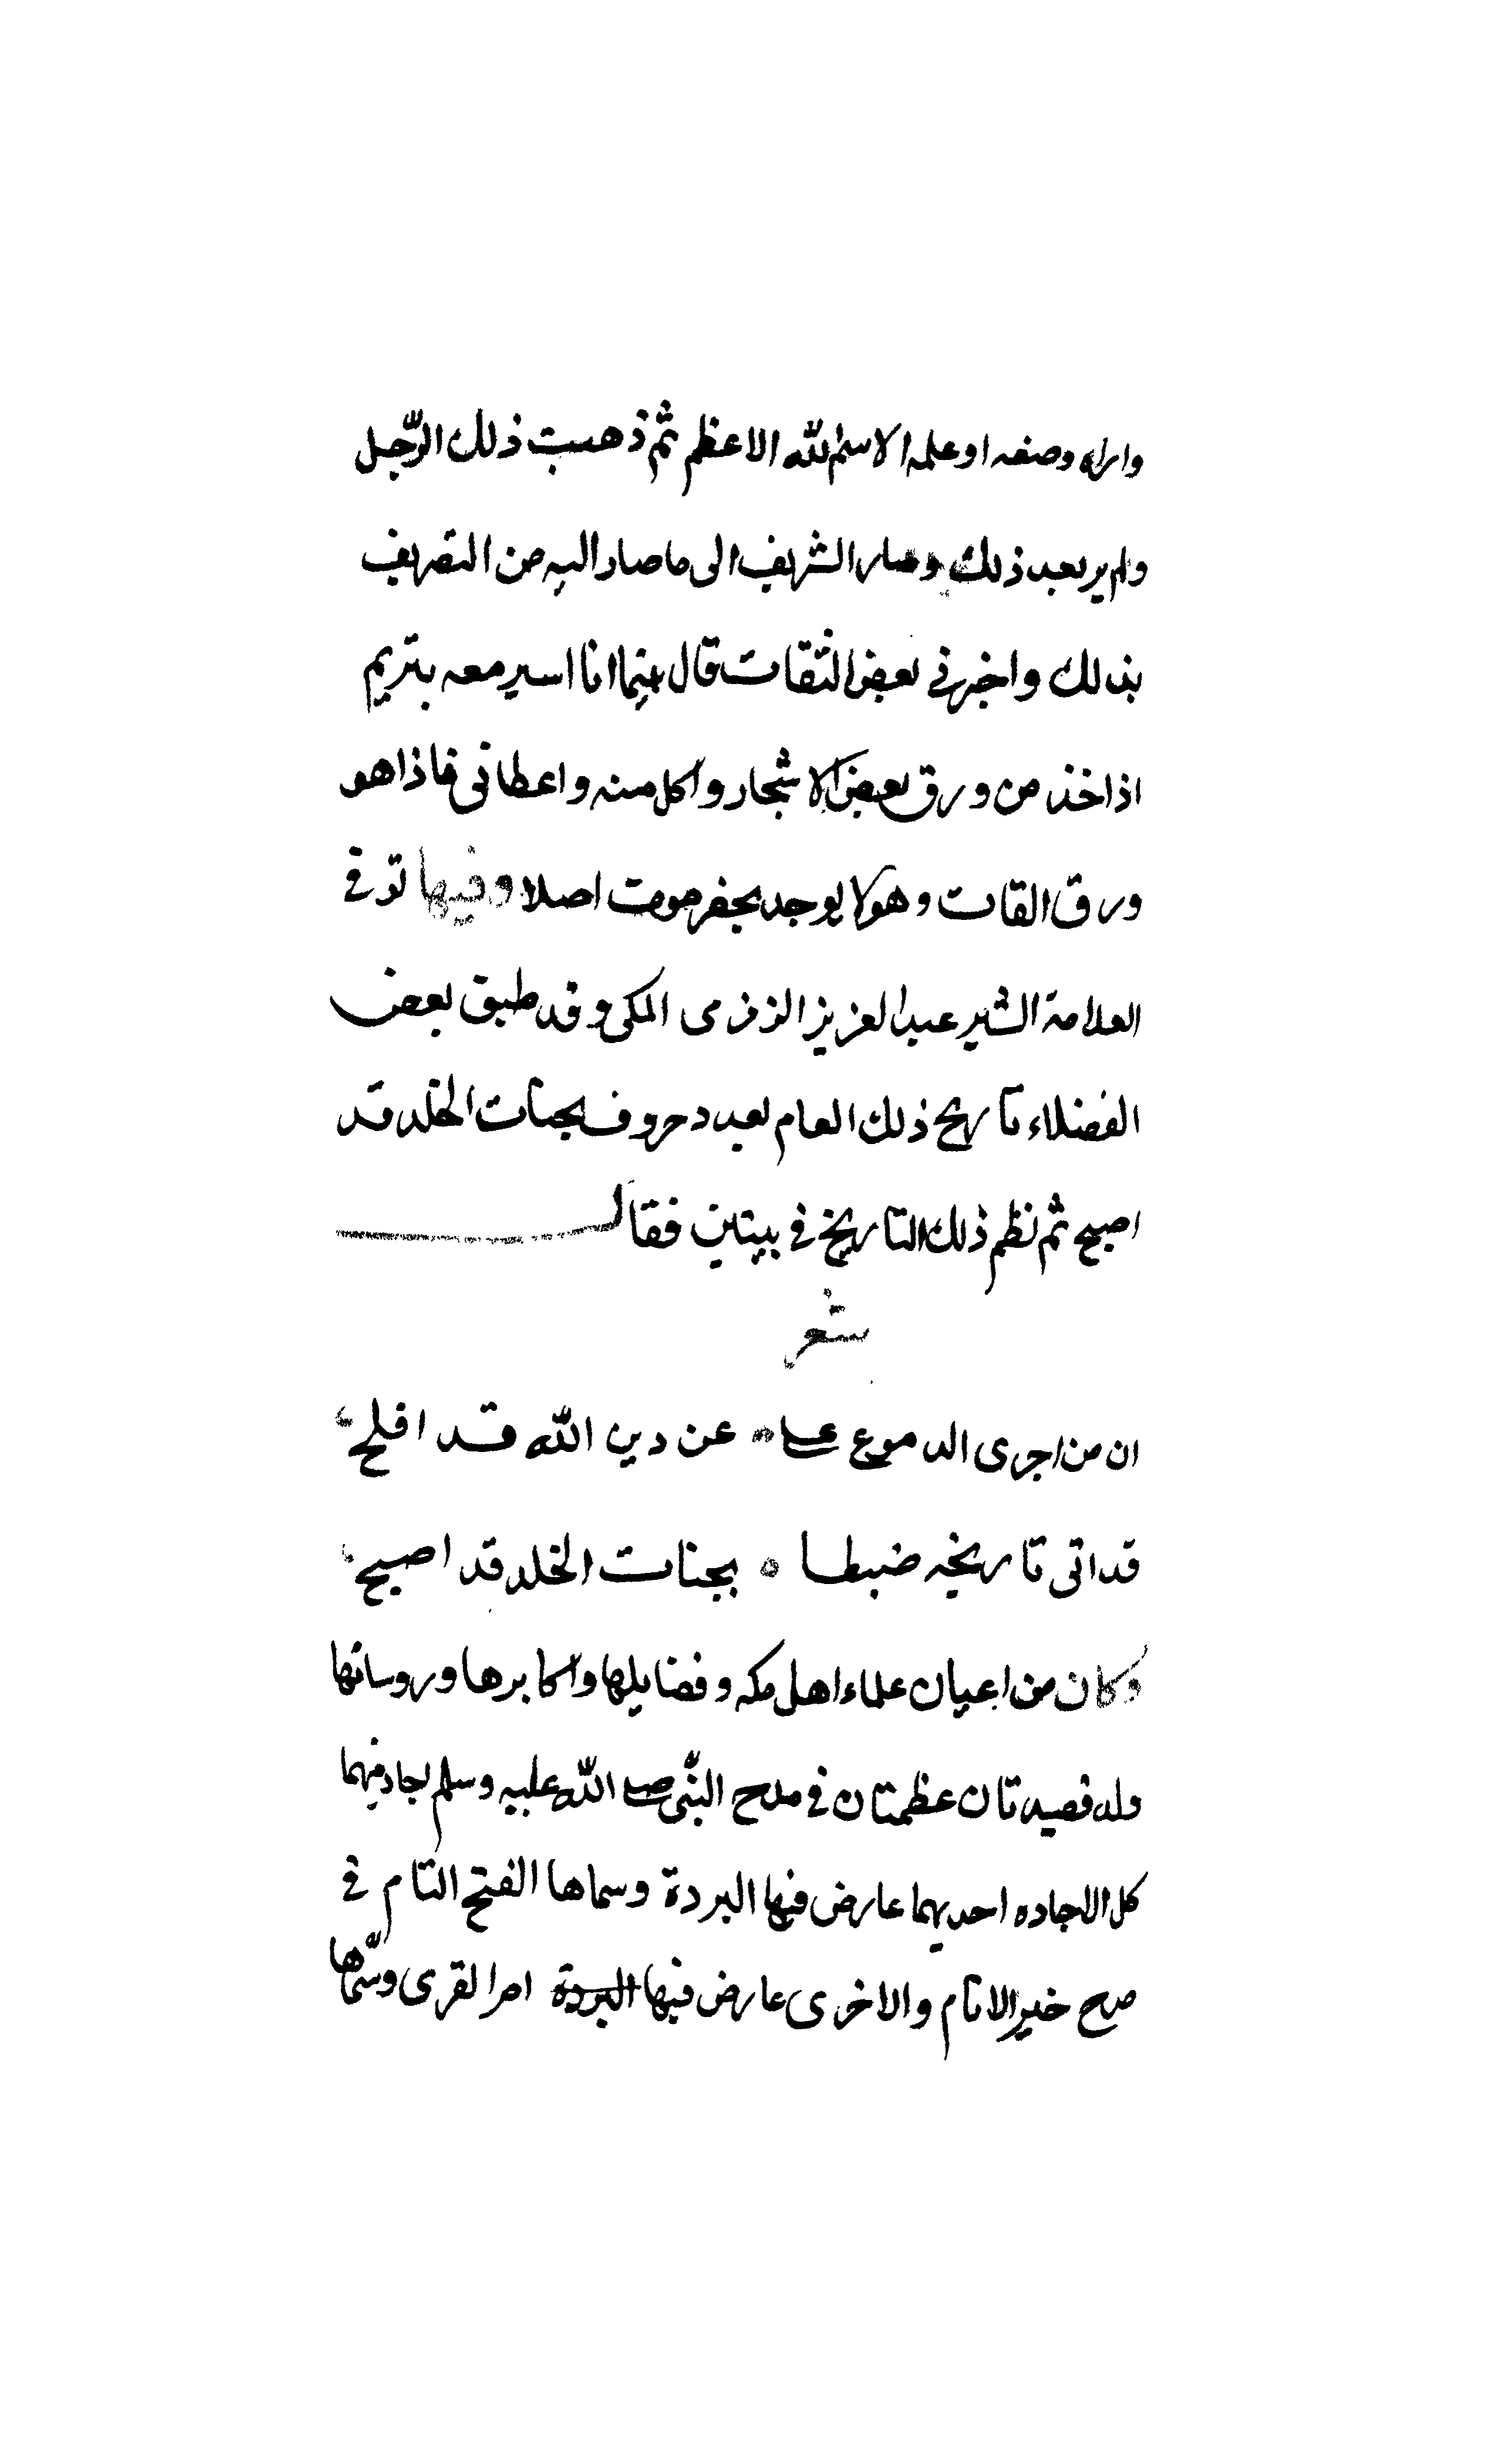 واراه وصفه او علمه الاسم لله الاعظم ثم ذهبت ذلك الرّجل
ولم ير بعد ذلك وصار الشريف الى ما صار اليه من التصريف
بذلك واخبرني بعض الثقات قال بينما انا اسير معه بتريم
اذ اخذ من ورق بعض الاشجار واكل منه واعطاني فاذا هو
ورق القات وهو لا يوجد بحضرموت اصلا وفيها توفي
العلامة الشهير عبد العزيز الزمزمي المكي وقد طبق بعض
الفضلاء تاريخ ذلك العام بعدد حروف بجنات الخلد قد
اصبح ثم نظم ذلك التاريخ في بيتين فقال
شعر
ان من اجرى الدموع على عن دين الله قد افلح
قد اتى تاريخه ضبطا بجنات الخلد قد اصبح
وكان من اعيان علماء اهل مكه وفضايلها واكابرها وروسائها
وله قصيدتان عظمتان في مدح النبّي صلى اللّه عليه وسلم اجاد فيهما
كل الاجاده احديهما عارض فيها البردة وسماها الفتح التام في
مدح خير الانام والاخرى عارض فيها البردة ام القرى وسّماها